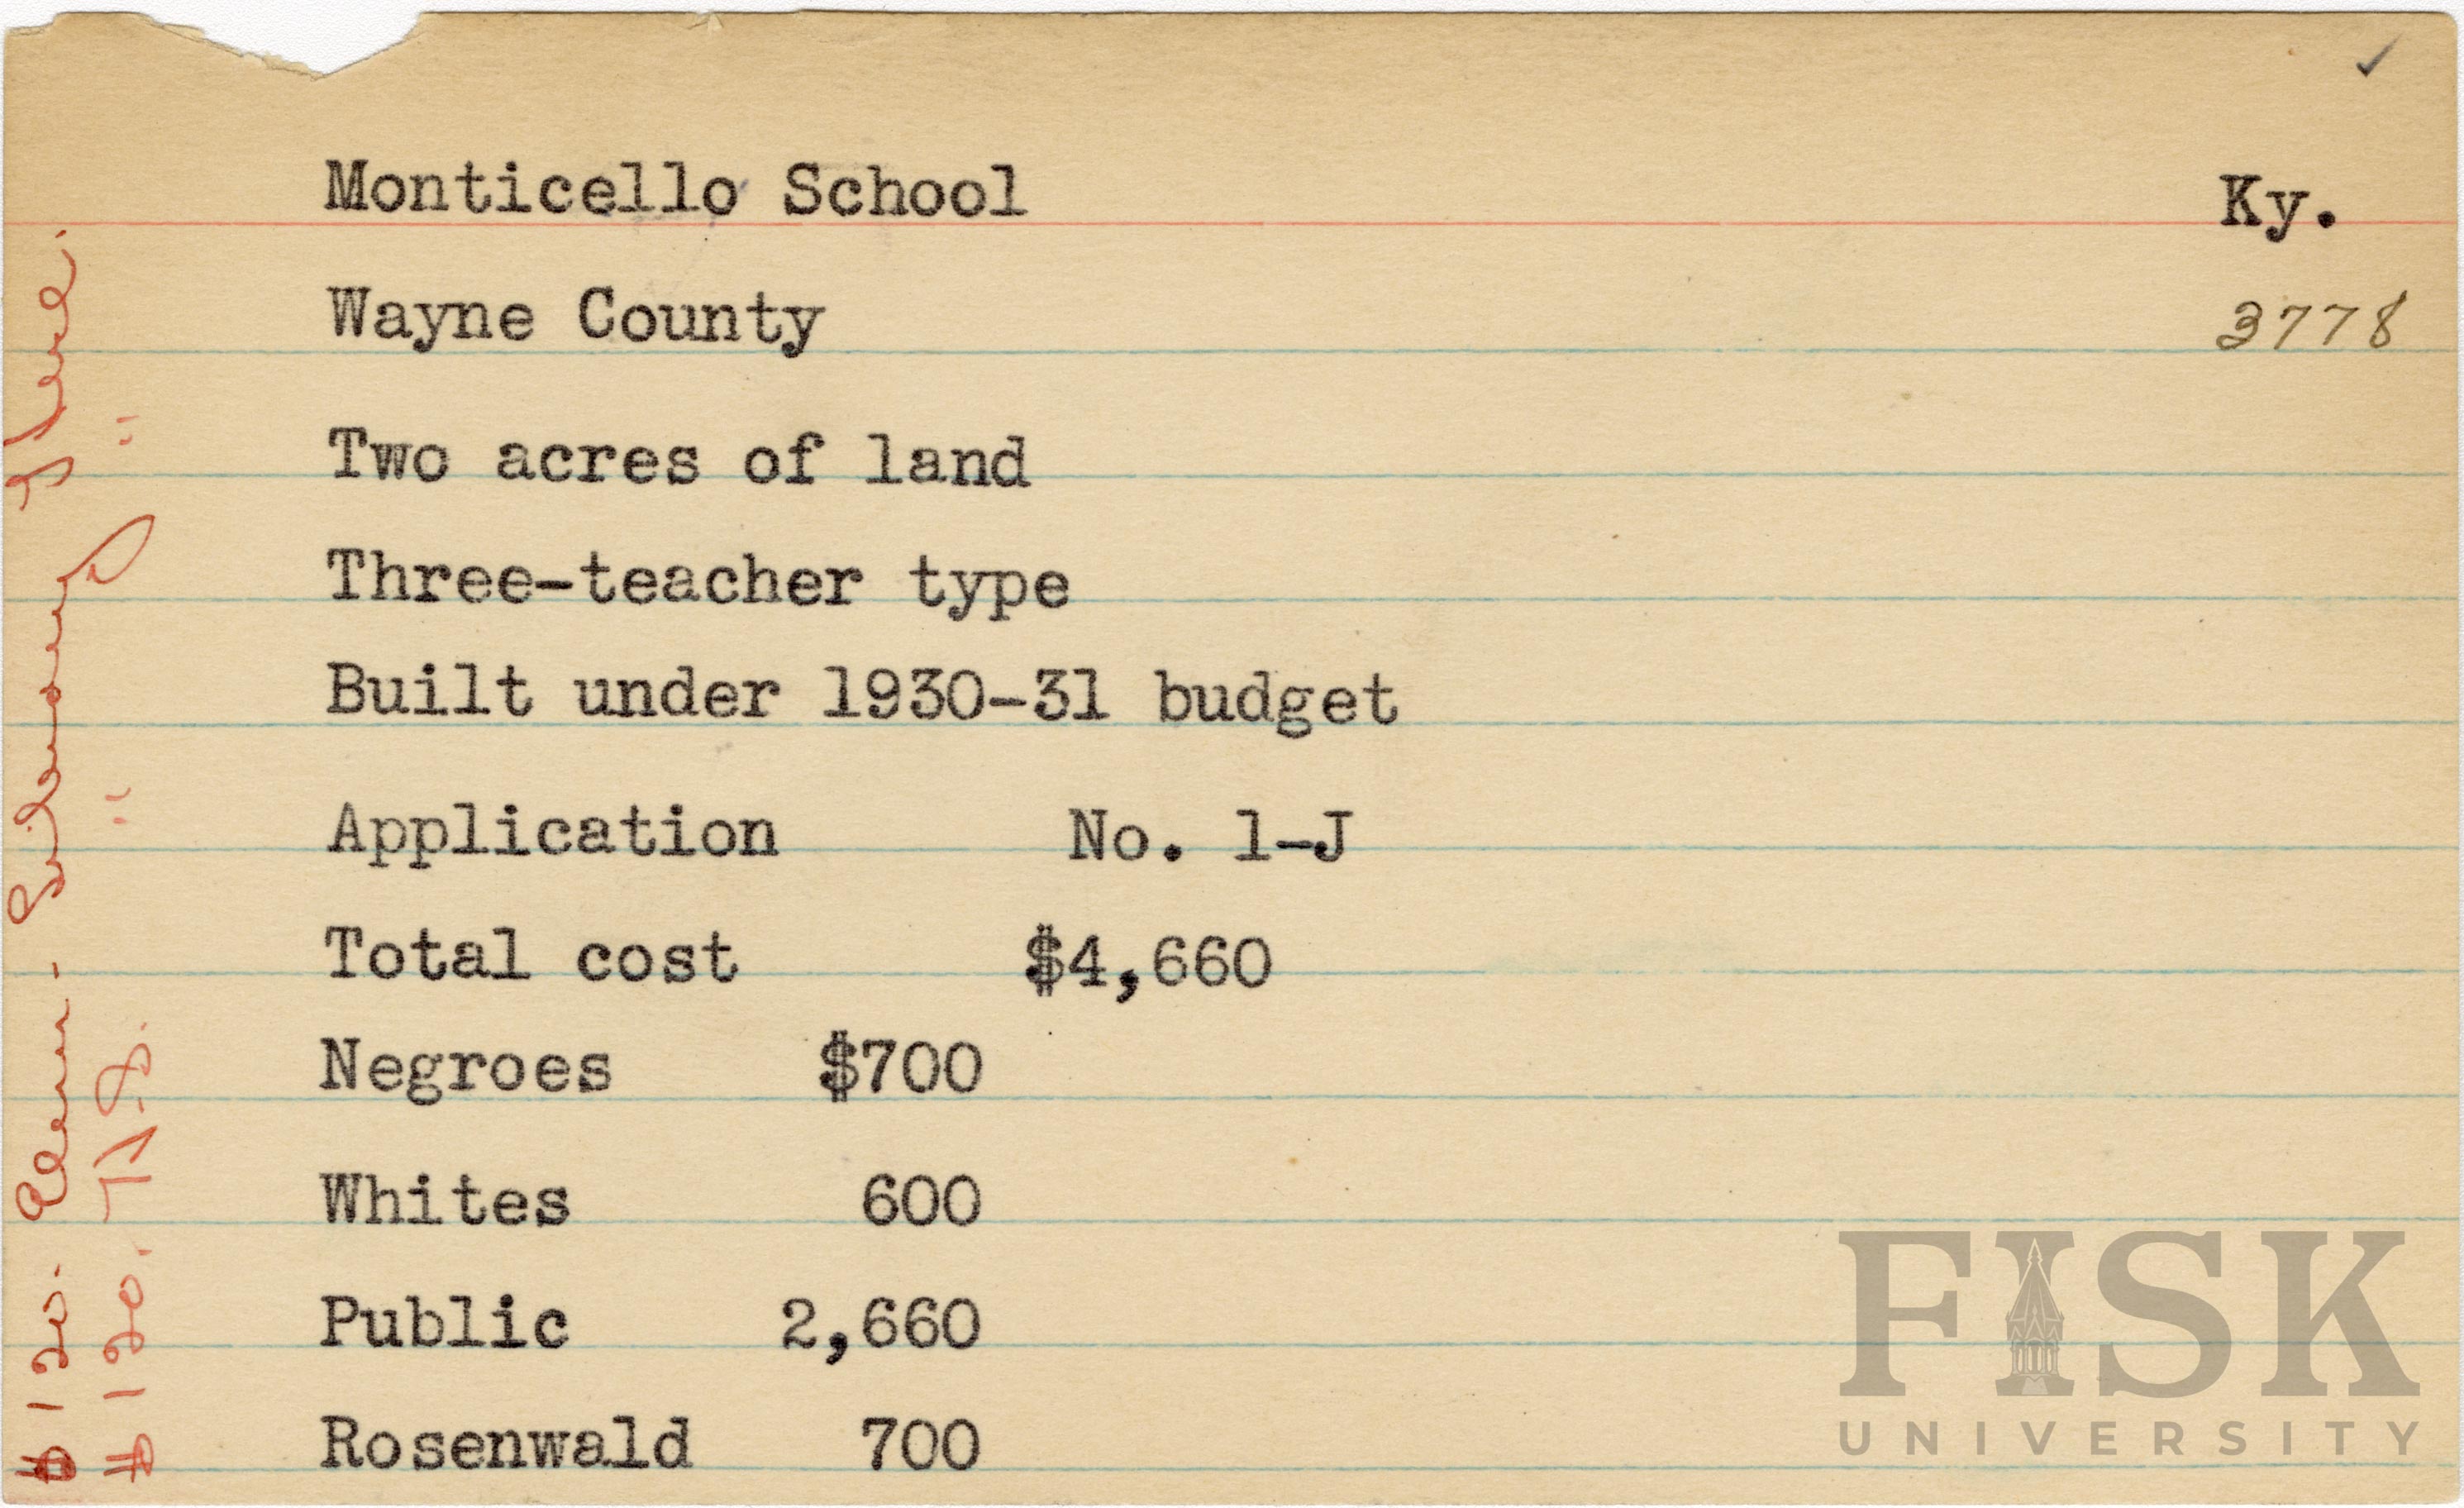 Monticello School Ky.
Wayne County 3778
Two acres of land
Three-teacher type
Built under 1930-31 budget
Application No. 1-J
Total cost $4,660
Negroes $700
Whites 600
Public 2,660
Rosenwald 700
$120. Elem. Library
$120.
FISK
UNIVERSITY